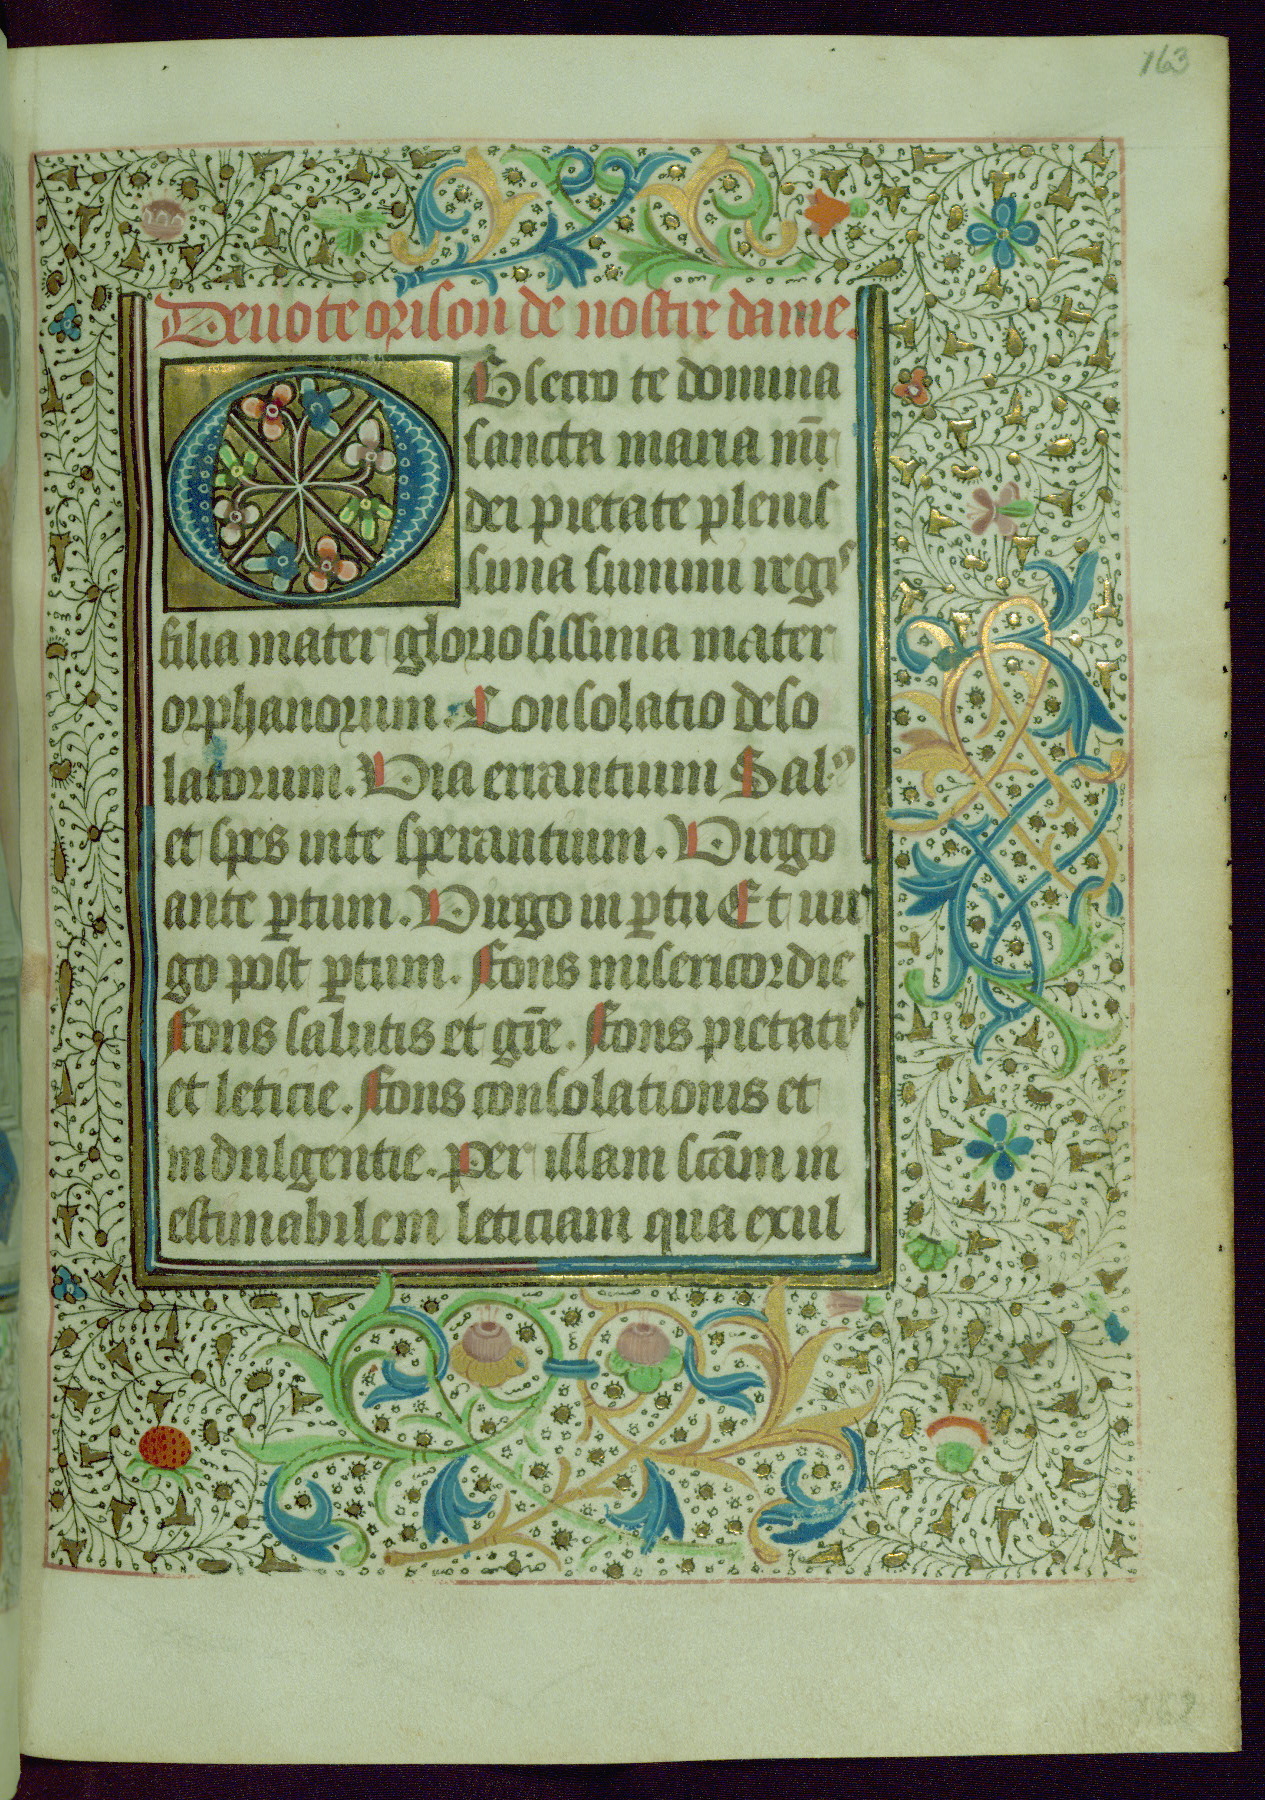 163
Deuote orison de nostre dame.
OBsecro te domina
sancta maria mr̄
dei pietate plenis
sima summi regis
filia mater gloriosissima mater
orphanorum. Consolatio deso
latorum. Via errantium Sal9
et spes inte sperantium. Virgo
ante ꝑtum. Virgo in ꝑtu Et uir
go post ꝑtum. Fons misericordie
Fons salutis et gr̄e. Fons pietatis
et leticie. Fons consolationis et
indulgentie. Per illam scām in
estimabilem leticiam qua exul